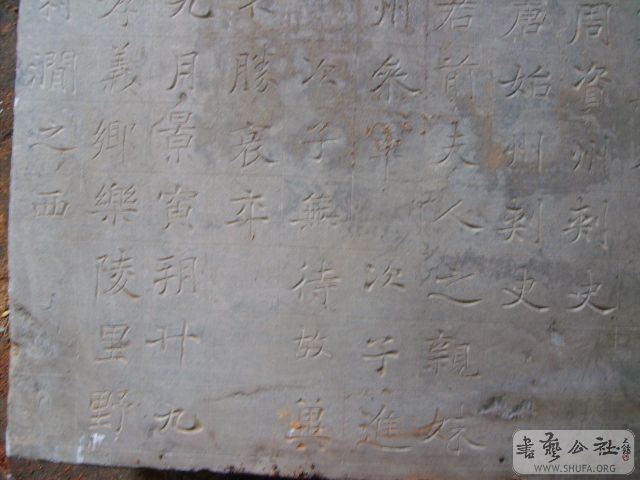 周資州刺史
唐始州刺史
若前夫人之親妹
州叅軍 次子進
次子無待故萬
勝哀卒
九月景寅朔廿九
孝義鄉樂陵里野
澗之西
書藝公社
WWW.SHUFA.ORG